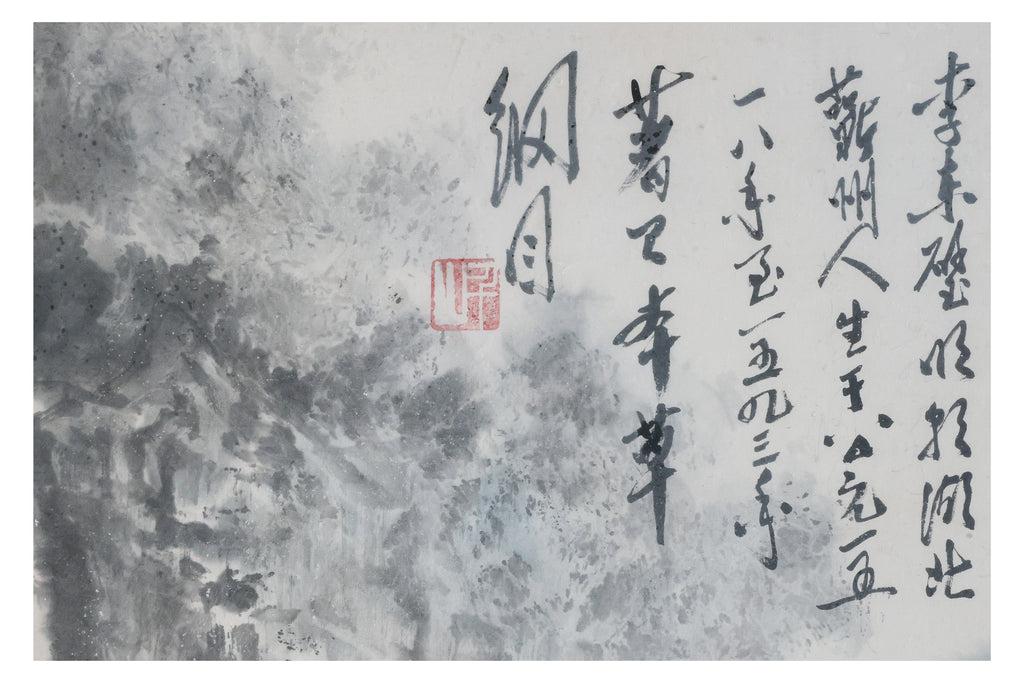 李东璧明朝湖北
蕲州人生于公元一五
一八年至一五九三年
著 本草
纲目